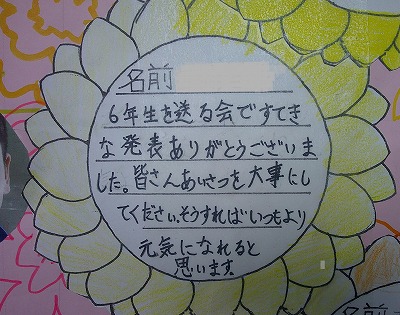 名前
6年生を送る会ですてき
な発表ありがとうございま
した。皆さんあいさつを大事にし
てください。そうすればいつもより
元気になれると
思います
名前